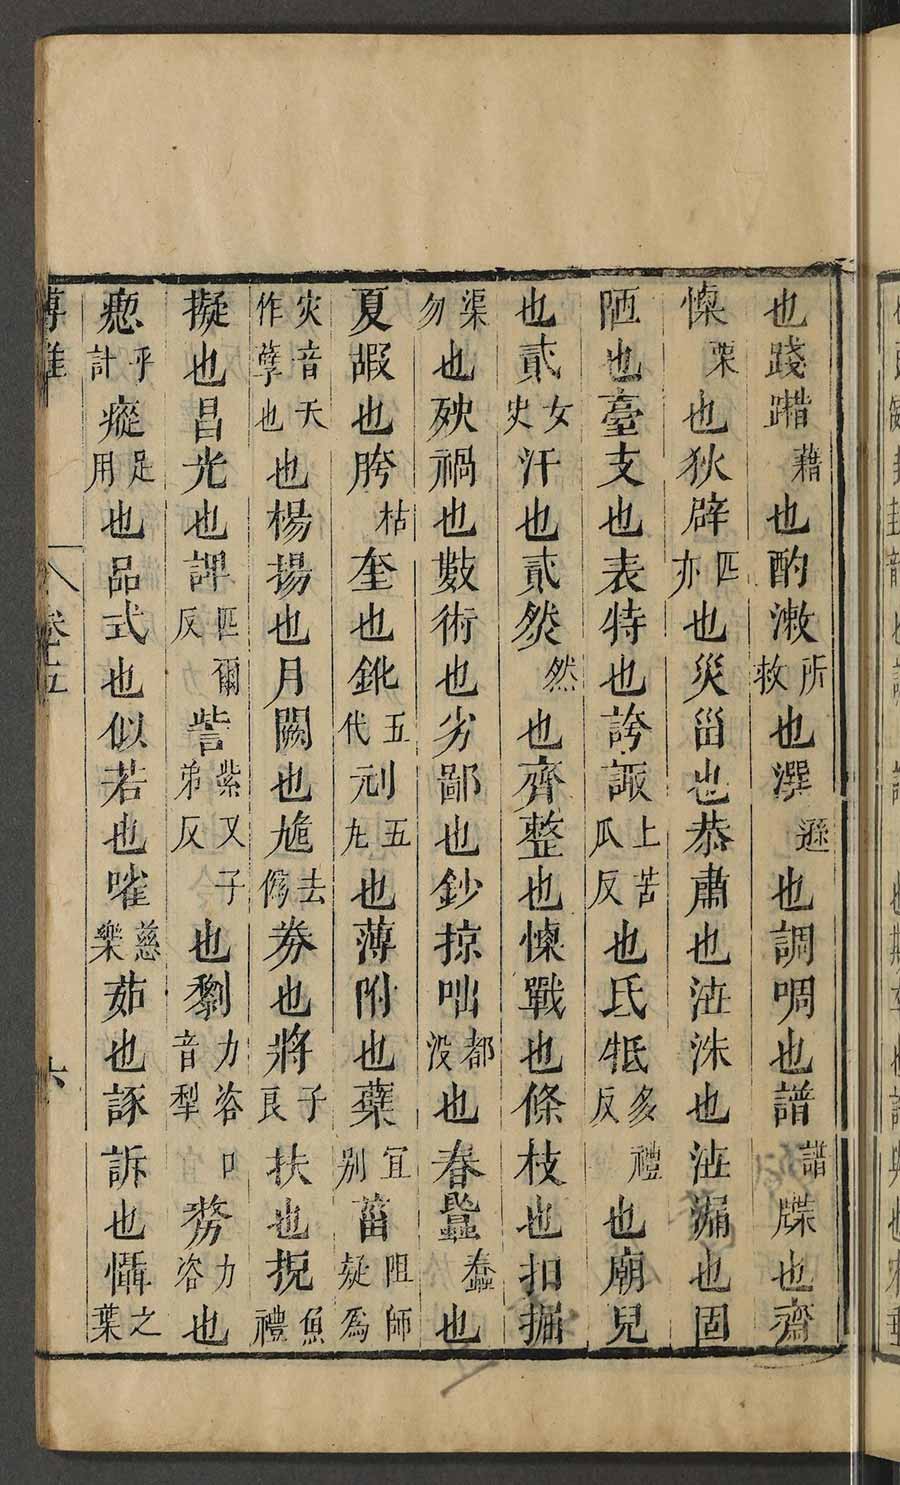 也踐踖藉也酌潄所救也潠遜也調啁也譜譜牒也齋
慄栗也狄辟匹亦也災甾也恭肅也㳻洙也㳻漏也固
陋也臺支也表特也誇諏上苦瓜反也氐牴多禮反也廟皃
也貳女史汗也貳然然也齊整也悚戰也條枝也扣掘
渠勿也殃禍也數術也劣鄙也鈔掠咄都没也春蠢蠢也
夏嘏也胯枯奎也鈋五代刓五九也薄附也蘖宜别菑阻師疑為
灾音天作孽也也楊揚也月闕也尯去僞券也將子良扶也掜魚禮
擬也昌光也諀匹爾反訾紫又子弟反也剺力咨音犁剺力咨也
瘛乎計瘲足用也品式也似若也嗺慈樂茹也諑訴也懾之葉
博雅 卷五 六